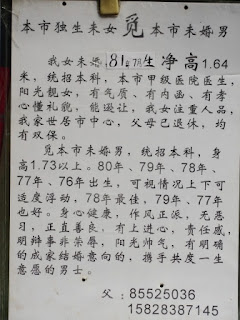 本市独生未女觅本市未婚男
我女未婚81.7月生净高1.64
米，统招本科，本市甲级医院医生，
阳光靓女，有气质、有内函、有孝
心懂礼貌，能逊让，我女注重人品，
我家世居市中心，父母已退休，均
有双保。
觅本市未婚男，统招本科，身
高1.73以上。80年、79年、78年、
77年、76年出生，可视情况上下可
适度浮动，78年最佳，79年、77年
也好。身心健康，作风正派，无恶
习，正直善良，有上进心，责任感，
明辩事非荣辱，阳光帅气，有明确
的成家结婚意向的，携手共度一生
意愿的男士。
父：85525036
15828387145